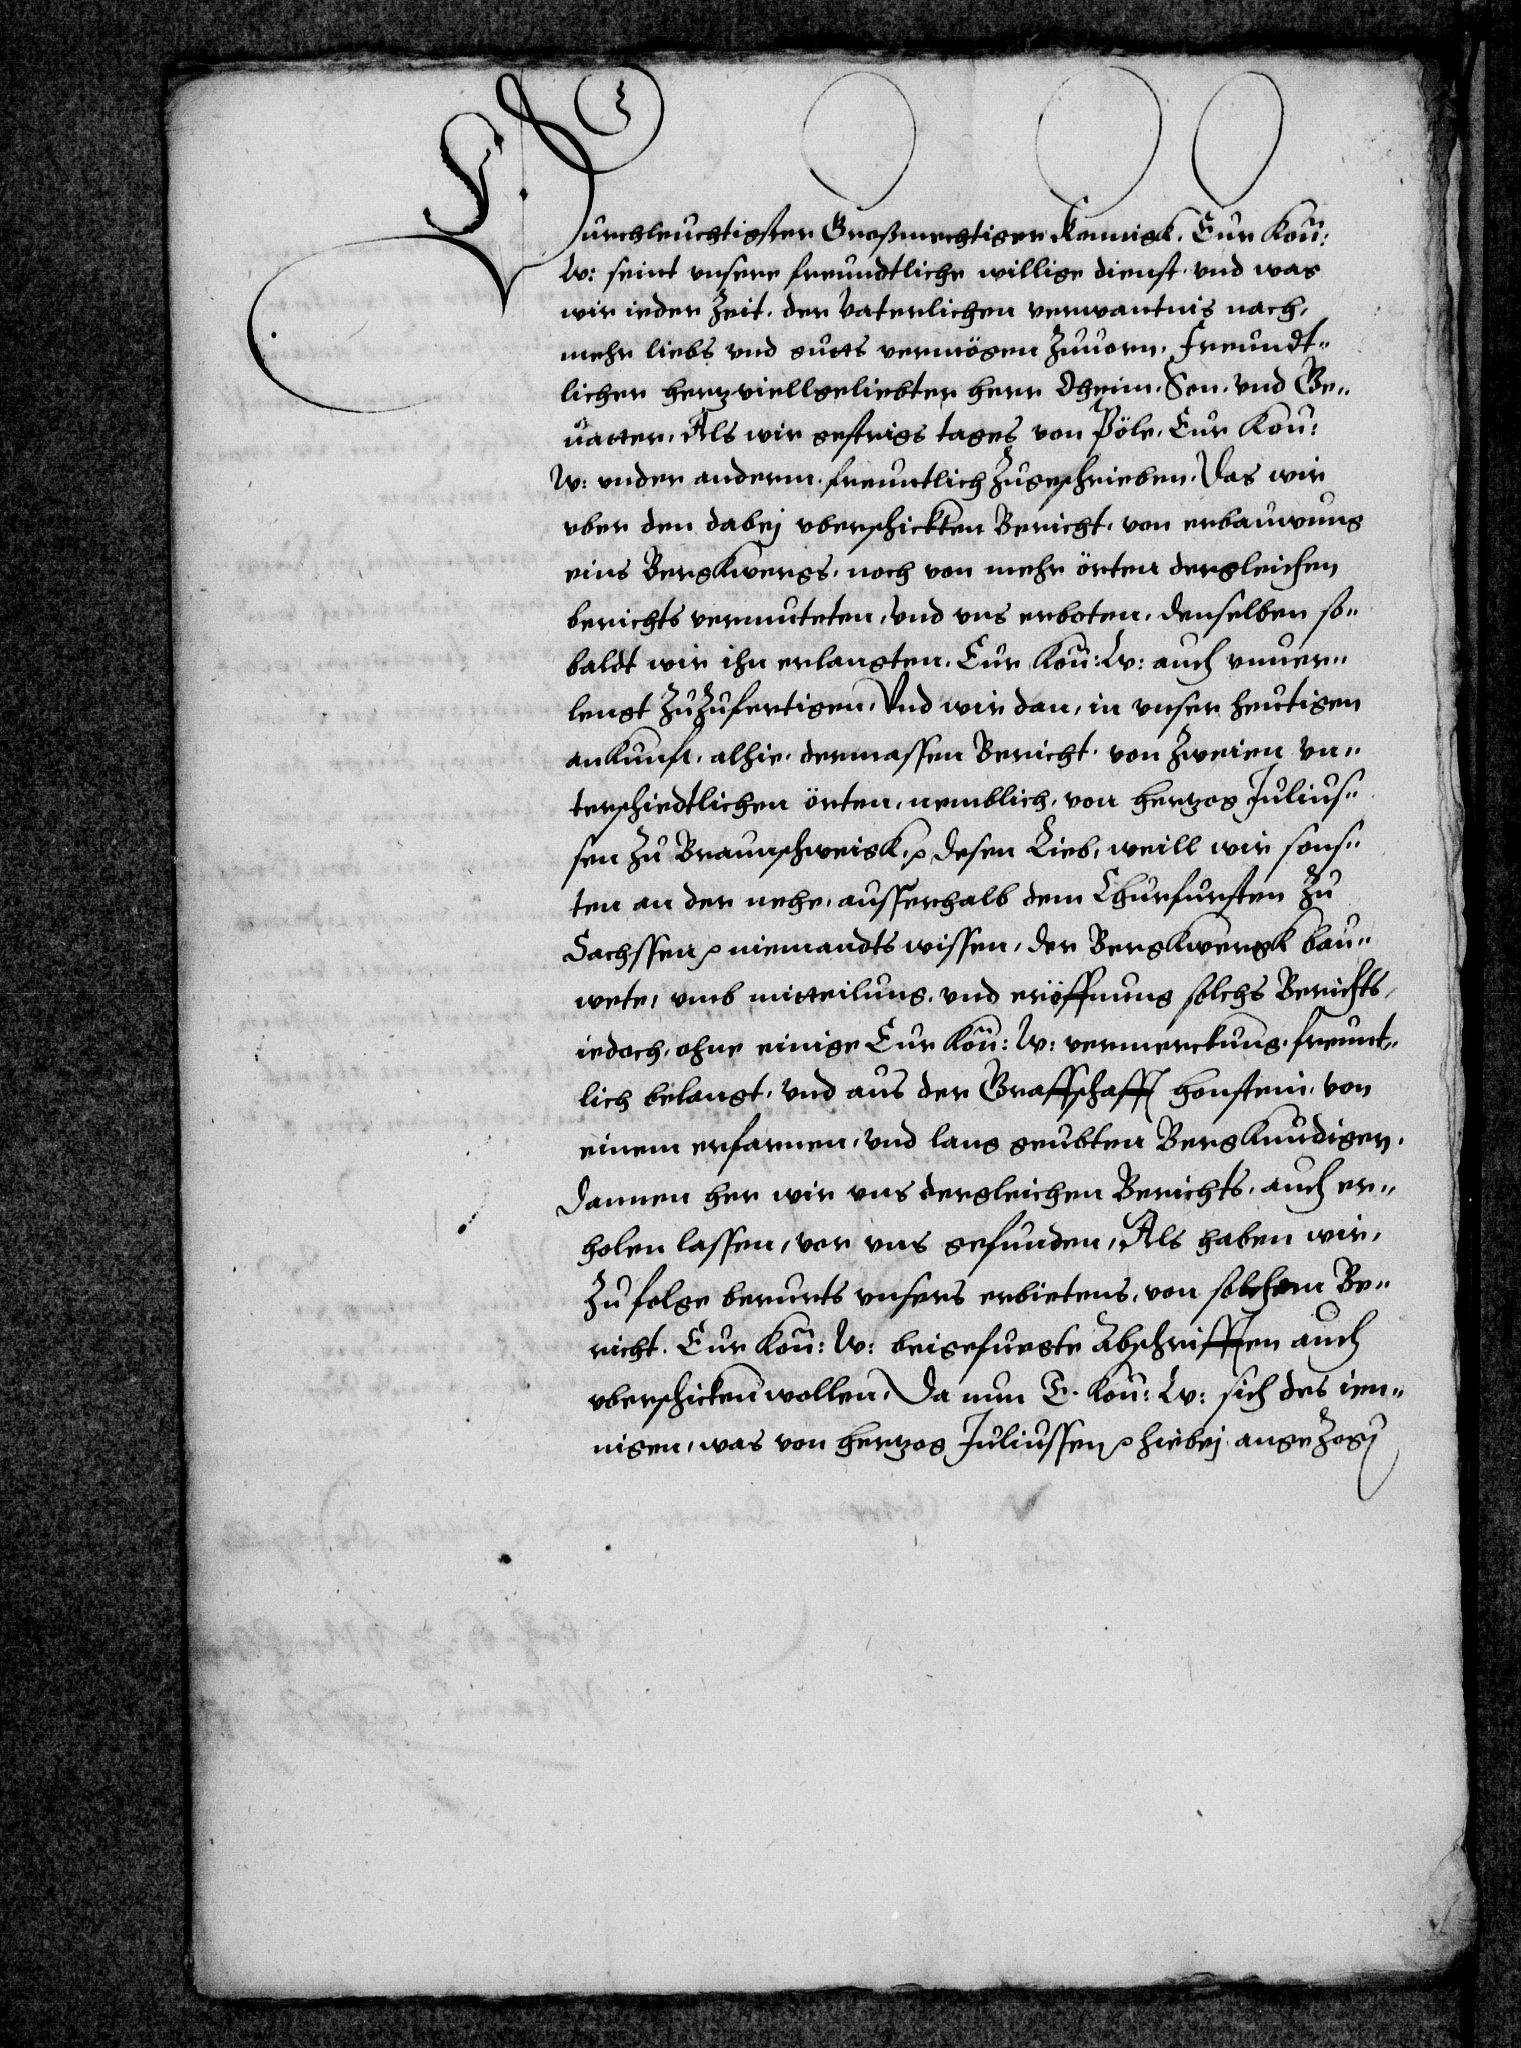 Durchleuchtigster Großmechtiger Konnigk, Eur Kön:
W: seint vnsere freundtliche willige dienst, vnd was
wir ieder Zeit, der Vaterlichen verwantnis nach,
mehr liebs vnd gutts vermögen Zuuorn, Freundt-
licher hertzviellgeliebter herr Oheim, Son, vnd Ge-
uatter, Als wir gestrigs tages von Pöle, Eur Kön:
W: vnder anderm, freuntlich Zugeschrieben, Das wir
vber den dabej vberschickten Bericht, von erbauwung
eins Bergkwergs, noch von mehr örten dergleichen
berichts vermuteten, Vnd vns erboten, denselben so-
baldt wir ihn erlangten, Eur Kön: W: auch vnuer-
lengt ZuZufertigen, Vnd wir dan, in vnser heutigen
ankunft, alhie, dermassen Bericht, von Zweien vn-
terschiedtlichen örten, nemblich, von hertzog Julius-
sen Zu Braunschweigk, desen Lieb, weill wir sons-
ten an der nehe, ausserhalb dem Churfursten Zu
Sachssen niemandts wissen, der Bergkwergk bau-
wete, vmb mitteilung, vnd eröffnung solchs Berichts,
iedoch, ohne einige Eur Kön: W: vermerckung, freunt-
lich belangt, Vnd aus der Graffschafft honstein, von
einem erfarnen, vnd lang geubten Bergkundigen,
dannen her wir vns dergleichen Berichts, auch er-
holen lassen, vor vns gefunden, Als haben wir,
Zu folge berurts vnsers erbietens, von solchem Be-
richt, Eur Kön: W: beigefuegte Abschrifften auch
vberschicken wollen, Da nun E. Kön: W: sich des ien-
nigen, was von hertzog Juliussen hiebej angeZogen